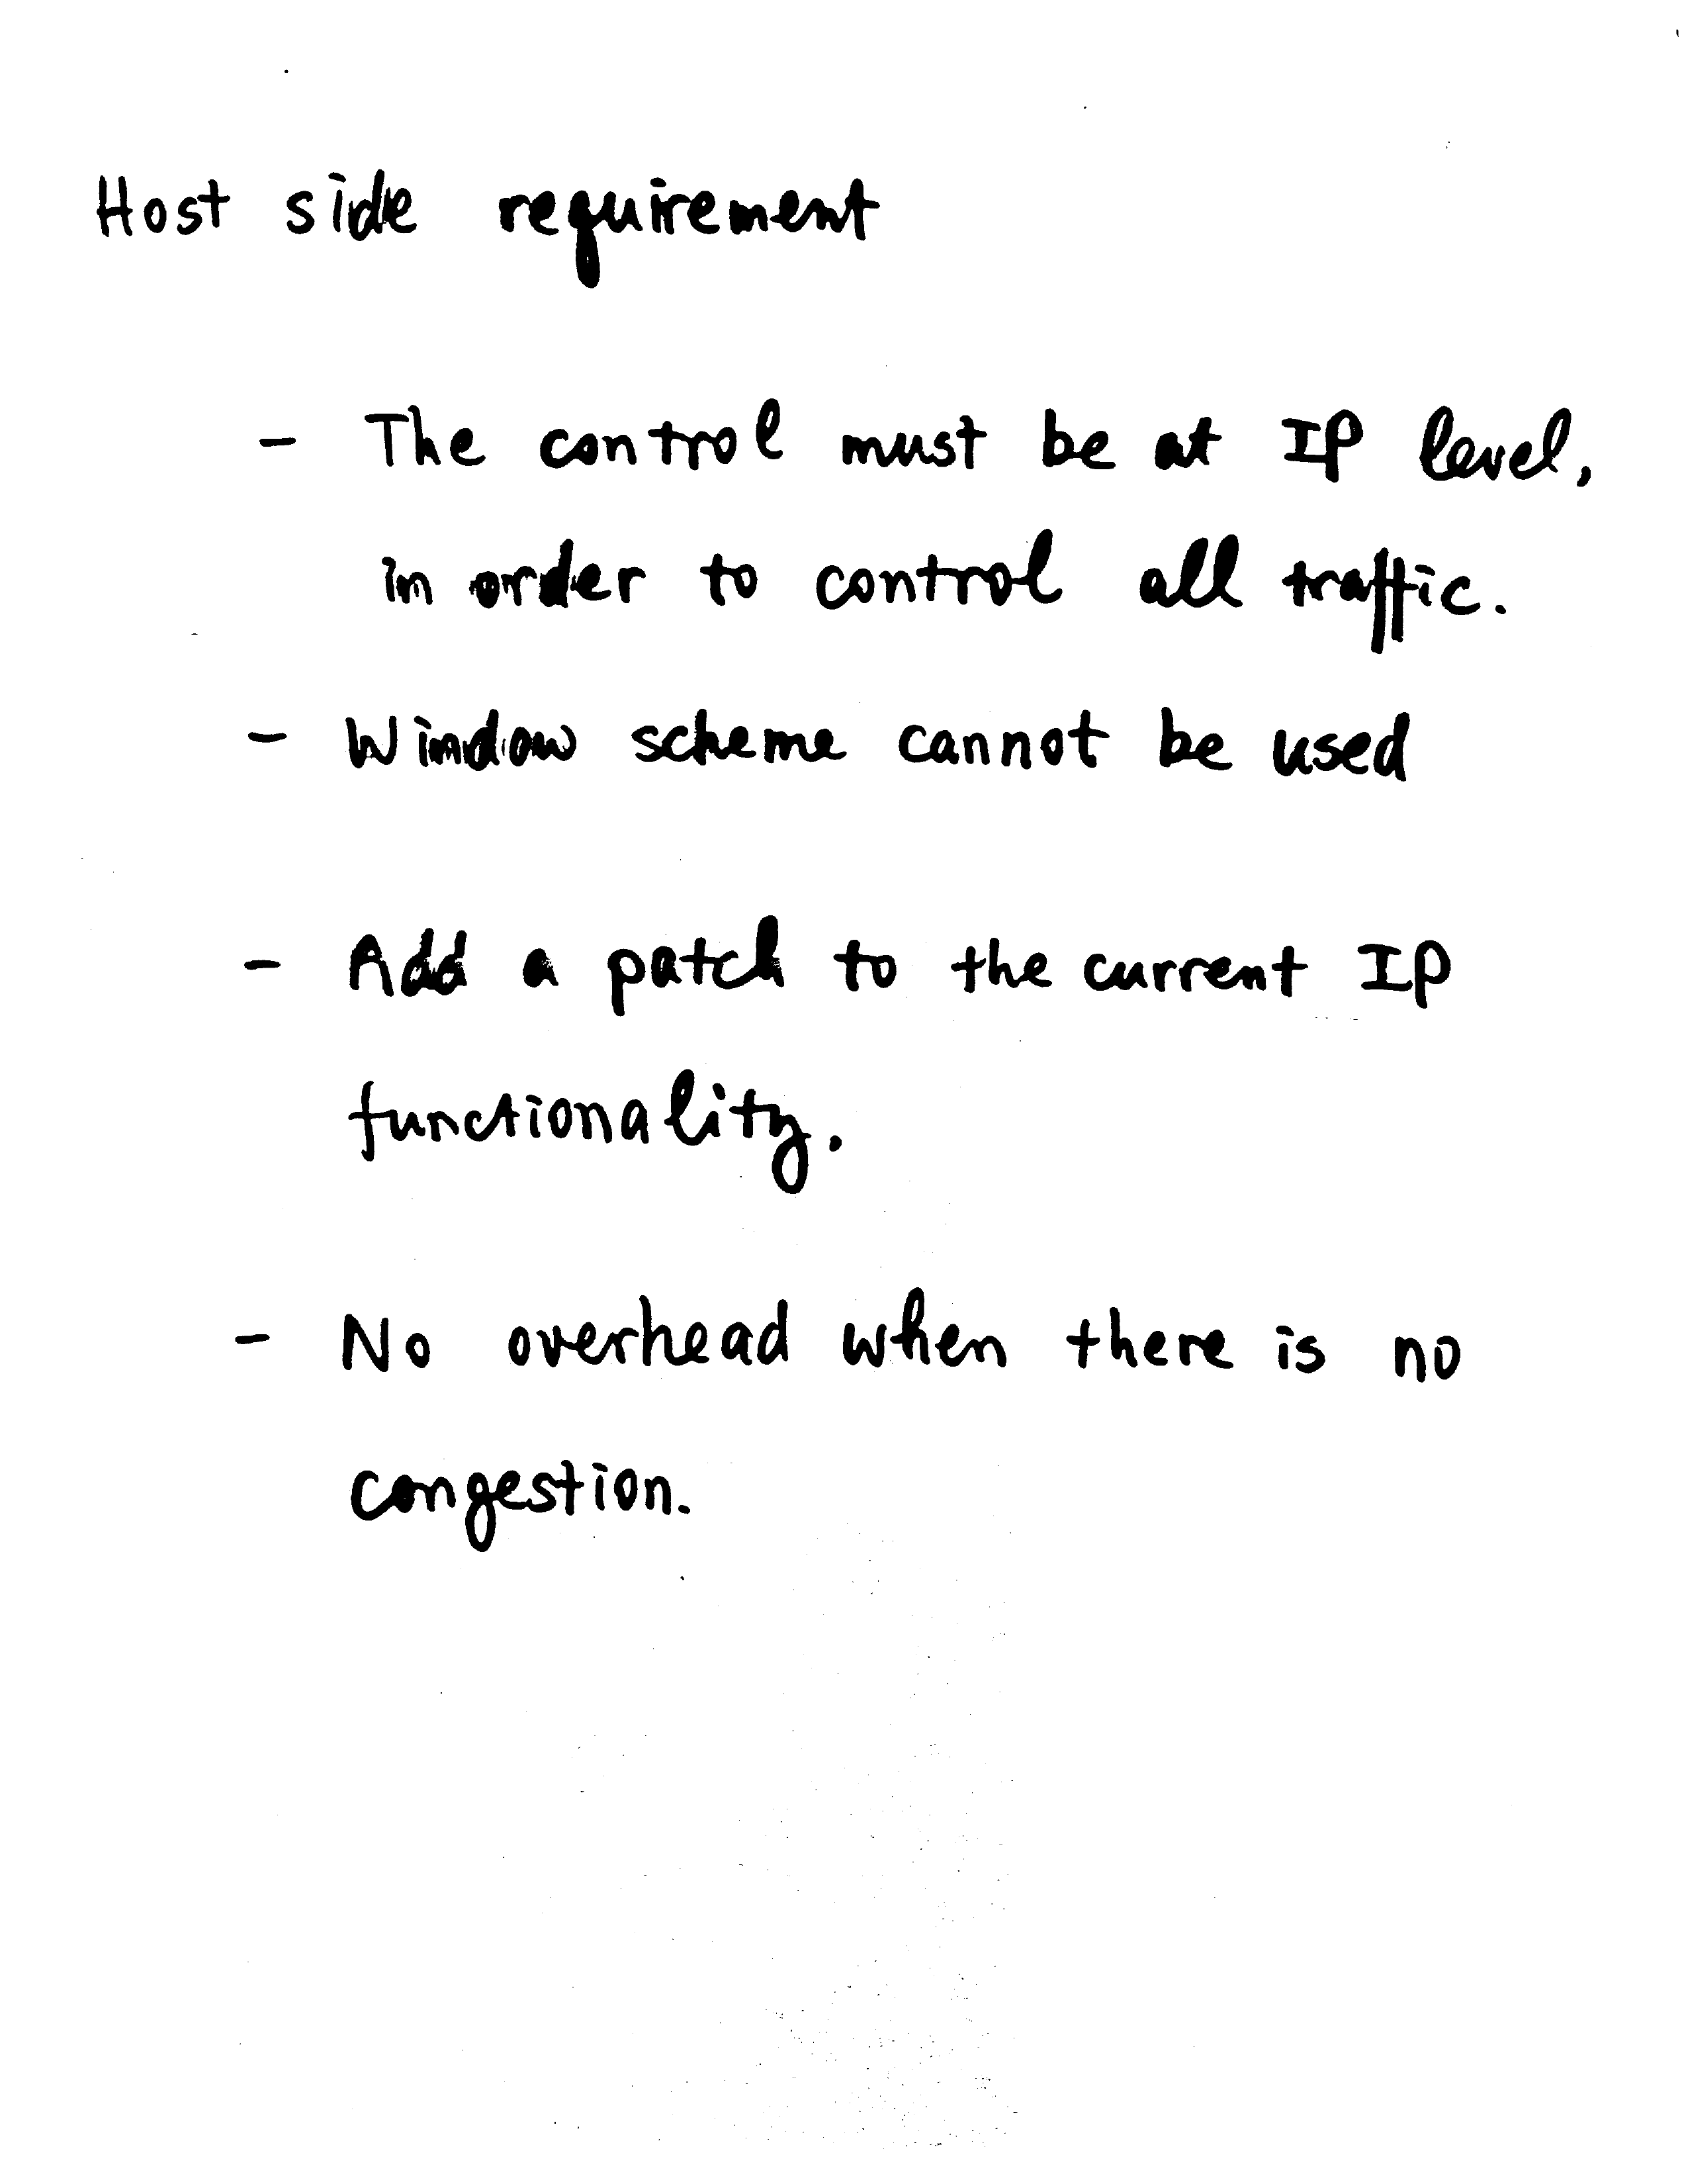 Host side requirement
- The control must be at IP level,
in order to control all traffic.
- Window scheme cannot be used
- Add a patch to the current IP
functionality.
- No overhead when there is no
congestion.